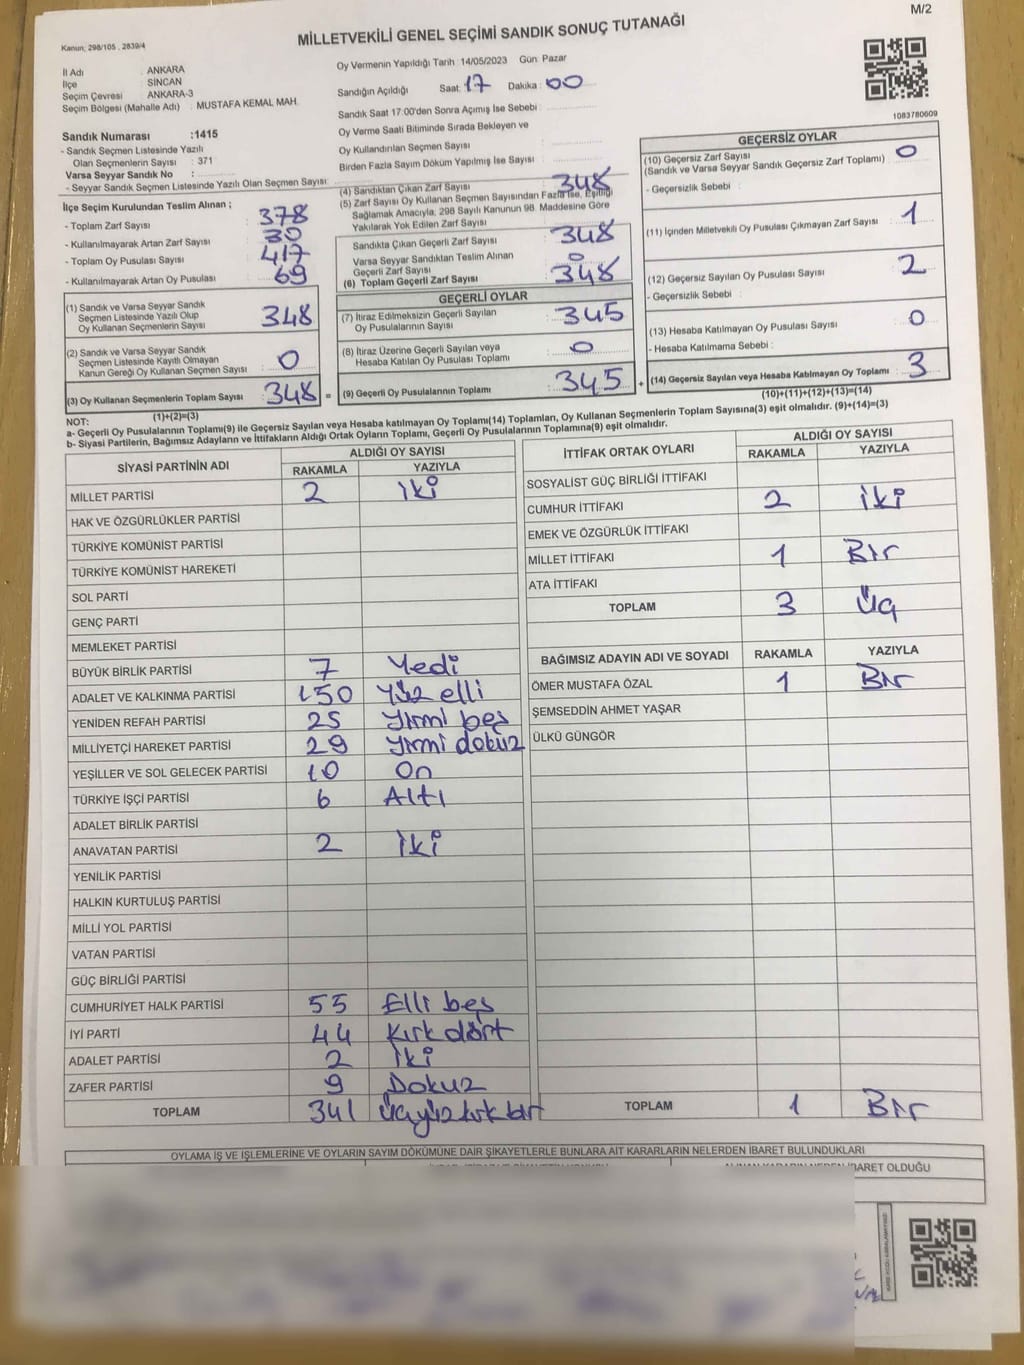 M/2
Kanun; 298/105 , 2839/4
MİLLETVEKİLİ GENEL SEÇİMİ SANDIK SONUÇ TUTANAĞI
İl Adı : ANKARA
İlçe : SİNCAN
Seçim Çevresi : ANKARA-3
Seçim Bölgesi (Mahalle Adı) : MUSTAFA KEMAL MAH.
Sandık Numarası :1415
- Sandık Seçmen Listesinde Yazılı
Olan Seçmenlerin Sayısı : 371
Varsa Seyyar Sandık No :
- Seyyar Sandık Seçmen Listesinde Yazılı Olan Seçmen Sayısı:
Oy Vermenin Yapıldığı Tarih :14/05/2023 Gün Pazar
Sandığın Açıldığı Saat: 17 Dakika: 00
Sandık Saat 17:00'den Sonra Açımış İse Sebebi :
Oy Verme Saati Bitiminde Sırada Bekleyen ve
Oy Kullandırılan Seçmen Sayısı :
Birden Fazla Sayım Döküm Yapılmış İse Sayısı :
1083780609
İlçe Seçim Kurulundan Teslim Alınan ;
- Toplam Zarf Sayısı : 378
- Kullanılmayarak Artan Zarf Sayısı : 30
- Toplam Oy Pusulası Sayısı : 417
- Kullanılmayarak Artan Oy Pusulası : 69
(1) Sandık ve Varsa Seyyar Sandık
Seçmen Listesinde Yazılı Olup
Oy Kullanan Seçmenlerin Sayısı : 348
(2) Sandık ve Varsa Seyyar Sandık
Seçmen Listesinde Kayıtlı Olmayan
Kanun Gereği Oy Kullanan Seçmen Sayısı : 0
(3) Oy Kullanan Seçmenlerin Toplam Sayısı : 348 =
(1)+(2)=(3)
(4) Sandıktan Çıkan Zarf Sayısı : 348
(5) Zarf Sayısı Oy Kullanan Seçmen Sayısından Fazla İse, Eşitliği
Sağlamak Amacıyla, 298 Sayılı Kanunun 98. Maddesine Göre
Yakılarak Yok Edilen Zarf Sayısı :
Sandıkta Çıkan Geçerli Zarf Sayısı : 348
Varsa Seyyar Sandıktan Teslim Alınan
Geçerli Zarf Sayısı : 0
(6) Toplam Geçerli Zarf Sayısı : 348
GEÇERLİ OYLAR
(7) İtiraz Edilmeksizin Geçerli Sayılan
Oy Pusulalarının Sayısı : 345
(8) İtiraz Üzerine Geçerli Sayılan veya
Hesaba Katılan Oy Pusulası Toplamı : 0
(9) Geçerli Oy Pusulalarının Toplamı : 345 +
GEÇERSİZ OYLAR
(10) Geçersiz Zarf Sayısı : 0
(Sandık ve Varsa Seyyar Sandık Geçersiz Zarf Toplamı)
- Geçersizlik Sebebi :
(11) İçinden Milletvekili Oy Pusulası Çıkmayan Zarf Sayısı : 1
(12) Geçersiz Sayılan Oy Pusulası Sayısı : 2
- Geçersizlik Sebebi :
(13) Hesaba Katılmayan Oy Pusulası Sayısı : 0
- Hesaba Katılmama Sebebi :
(14) Geçersiz Sayılan veya Hesaba Katılmayan Oy Toplamı : 3
(10)+(11)+(12)+(13)=(14)
NOT:
a- Geçerli Oy Pusulalarının Toplamı(9) ile Geçersiz Sayılan veya Hesaba katılmayan Oy Toplamı(14) Toplamları, Oy Kullanan Seçmenlerin Toplam Sayısına(3) eşit olmalıdır. (9)+(14)=(3)
b- Siyasi Partilerin, Bağımsız Adayların ve İttifakların Aldığı Ortak Oyların Toplamı, Geçerli Oy Pusulalarının Toplamına(9) eşit olmalıdır.
SİYASİ PARTİNİN ADI ALDIĞI OY SAYISI
RAKAMLA YAZIYLA
MİLLET PARTİSİ 2 iki
HAK VE ÖZGÜRLÜKLER PARTİSİ
TÜRKİYE KOMÜNİST PARTİSİ
TÜRKİYE KOMÜNİST HAREKETİ
SOL PARTİ
GENÇ PARTİ
MEMLEKET PARTİSİ
BÜYÜK BİRLİK PARTİSİ 7 Yedi
ADALET VE KALKINMA PARTİSİ 150 Yüz elli
YENİDEN REFAH PARTİSİ 25 Yirmi beş
MİLLİYETÇİ HAREKET PARTİSİ 29 Yirmi dokuz
YEŞİLLER VE SOL GELECEK PARTİSİ 10 On
TÜRKİYE İŞÇİ PARTİSİ 6 Altı
ADALET BİRLİK PARTİSİ
ANAVATAN PARTİSİ 2 iki
YENİLİK PARTİSİ
HALKIN KURTULUŞ PARTİSİ
MİLLİ YOL PARTİSİ
VATAN PARTİSİ
GÜÇ BİRLİĞİ PARTİSİ
CUMHURİYET HALK PARTİSİ 55 Elli beş
İYİ PARTİ 44 Kırk dört
ADALET PARTİSİ 2 iki
ZAFER PARTİSİ 9 Dokuz
TOPLAM 341 Üçyüz kırk bir
İTTİFAK ORTAK OYLARI ALDIĞI OY SAYISI
RAKAMLA YAZIYLA
SOSYALİST GÜÇ BİRLİĞİ İTTİFAKI
CUMHUR İTTİFAKI 2 iki
EMEK VE ÖZGÜRLÜK İTTİFAKI
MİLLET İTTİFAKI 1 Bir
ATA İTTİFAKI
TOPLAM 3 Üç
BAĞIMSIZ ADAYIN ADI VE SOYADI RAKAMLA YAZIYLA
ÖMER MUSTAFA ÖZAL 1 Bir
ŞEMSEDDİN AHMET YAŞAR
ÜLKÜ GÜNGÖR
TOPLAM 1 Bir
OYLAMA İŞ VE İŞLEMLERİNE VE OYLARIN SAYIM DÖKÜMÜNE DAİR ŞİKAYETLERLE BUNLARA AİT KARARLARIN NELERDEN İBARET BULUNDUKLARI
İBARET OLDUĞU